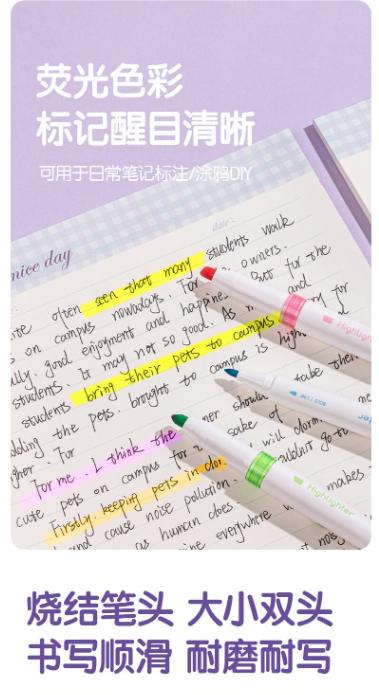 荧光色彩
标记醒目清晰
可用于日常笔记标注/涂鸦DIY
nice day
date:
often seen that many students walk
on campus nowadays. For owners.
good enjoyment and happine But for the
students. It may not so good. As
students bring their pets to campus
the pets. brought to campus is
tube then
For me. I think the
cute pets on campus for sake of
will dorm.
Firstly. keeping pets in dor
and cause noise pollution.
makes
as human does
everywhere
Highlighter
Highlighter
烧结笔头 大小双头
书写顺滑 耐磨耐写